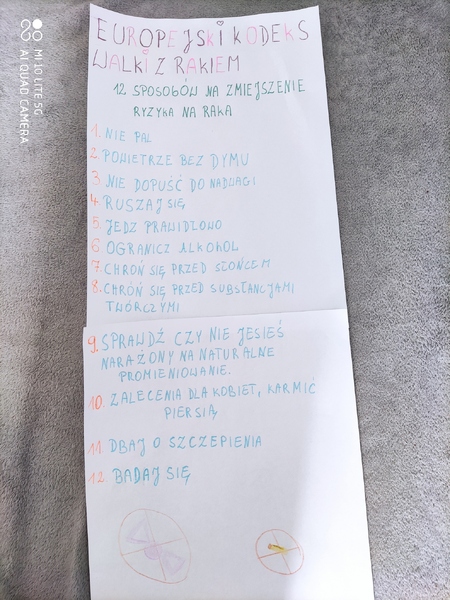 EUROPEJSKI KODEKS
WALKI Z RAKIEM
12 SPOSOBÓW NA ZMIEJSZENIE
RYZYKA NA RAKA
1. NIE PAL
2. POWIETRZE BEZ DYMU
3. NIE DOPUŚĆ DO NADWAGI
4. RUSZAJ SIĘ
5. JEDZ PRAWIDŁOWO
6 OGRANICZ ALKOHOL
7. CHROŃ SIĘ PRZED SŁOŃCEM
8. CHROŃ SIĘ PRZED SUBSTANCJAMI
TWÓRCZYMI
9. SPRAWDŹ CZY NIE JESIEŚ
NARAŻONY NA NATURALNE
PROMIENIOWANIE.
10. ZALECENIA DLA KOBIET, KARMIĆ
PIERSIĄ
11 DBAJ O SZCZEPIENIA
12. BADAJ SIĘ
MI 10 LITE 5G
AI QUAD CAMERA